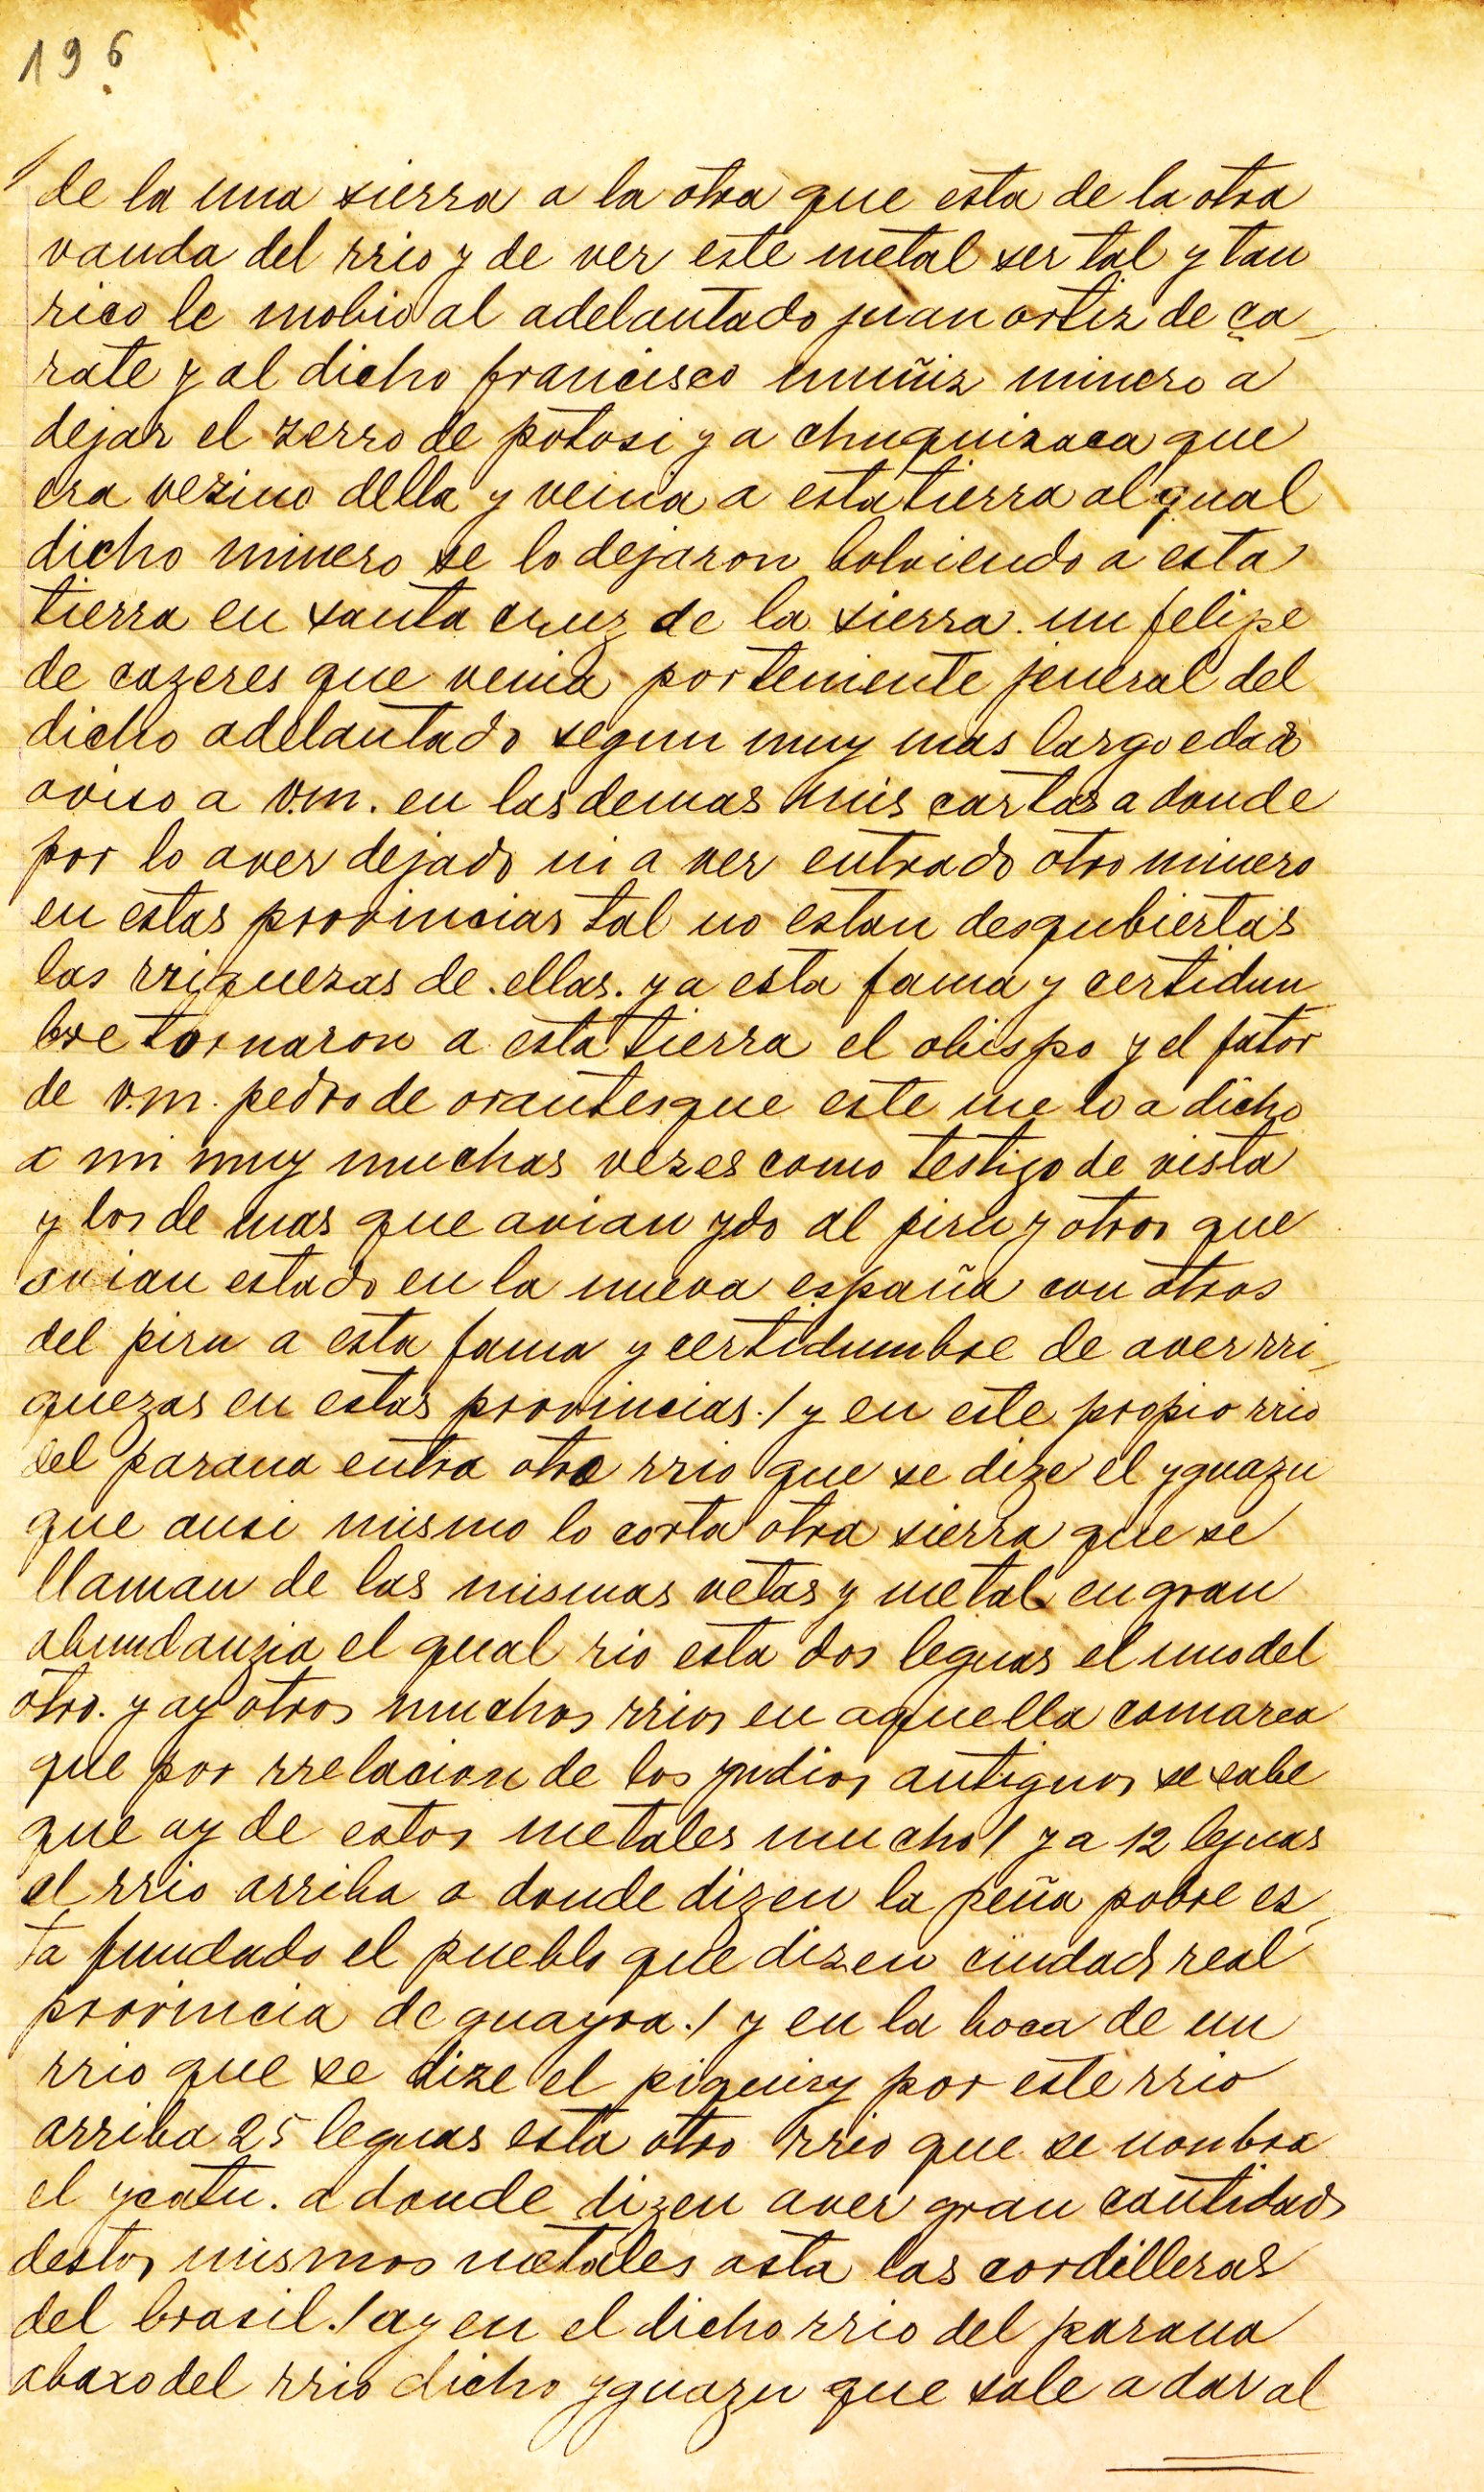 196
de la una sierra a la otra que esta de la otra
vanda del rrio y de ver este metal ser tal y tan
rico le mobio al adelantado juan ortiz de ça_
rate y al dicho francisco muñiz minero a
dejar el zerro de potosi y a chuquizaca que
era vezino della y venia a esta tierra al qual
dicho minero se lo dejaron bolviendo a esta
tierra en santa cruz de la sierra. un felipe
de cazeres que venia por teniente jeneral del
dicho adelantado segun muy mas largo e dado
aviso a v.m. en las demas mis cartas a donde
por lo aver dejado ni a ver entrado otro minero
en estas provincias tal no estan desqubiertas
las rriquezas de .ellas. y a esta fama y certidun_
bre tornaron a esta tierra el obispo y el fator
de v.m. pedro de orantes que este me lo a dicho
a mi muy muchas vezes como testigo de vista
y los de mas que avian ydo al piru y otros que
avian estado en la nueva españa con otros
del piru a esta fama y certidumbre de aver rri_
quezas en estas provincias./ y en este propio rrio
del parana entra otro rrio que se dize el yguazu
que ansi mismo lo corta otra sierra que se
llaman de las mismas vetas y metal en gran
abundanzia el qual rio esta dos leguas el uno del
otro. y ay otros muchos rrios en aquella comarca
que por rrelacion de los yndios antiguos se sabe
que ay de estos metales mucho/ y a 12 leguas
el rrio arriba a donde dizen la peña pobre es_
ta fundado el pueblo que dizen ciudad real
provincia de guayra./ y en la boca de un
rrio que se dize el piquiry por este rrio
arriba 25 leguas esta otro rrio que se nonbra
el ycatu. a donde dizen aver gran cantidad
destos mismos metales asta las cordilleras
del brasil./ ay en el dicho rrio del parana
abaxo del rrio dicho yguazu que sale a dar al